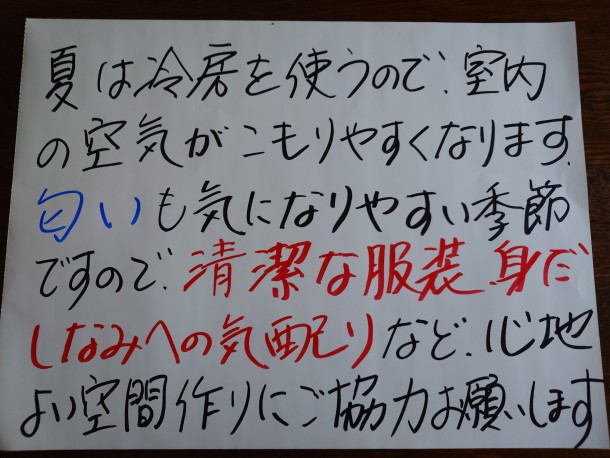 夏は冷房を使うので、室内
の空気がこもりやすくなります。
匂いも気になりやすい季節
ですので、清潔な服装、身だ
しなみへの気配りなど、心地
よい空間作りにご協力お願いします